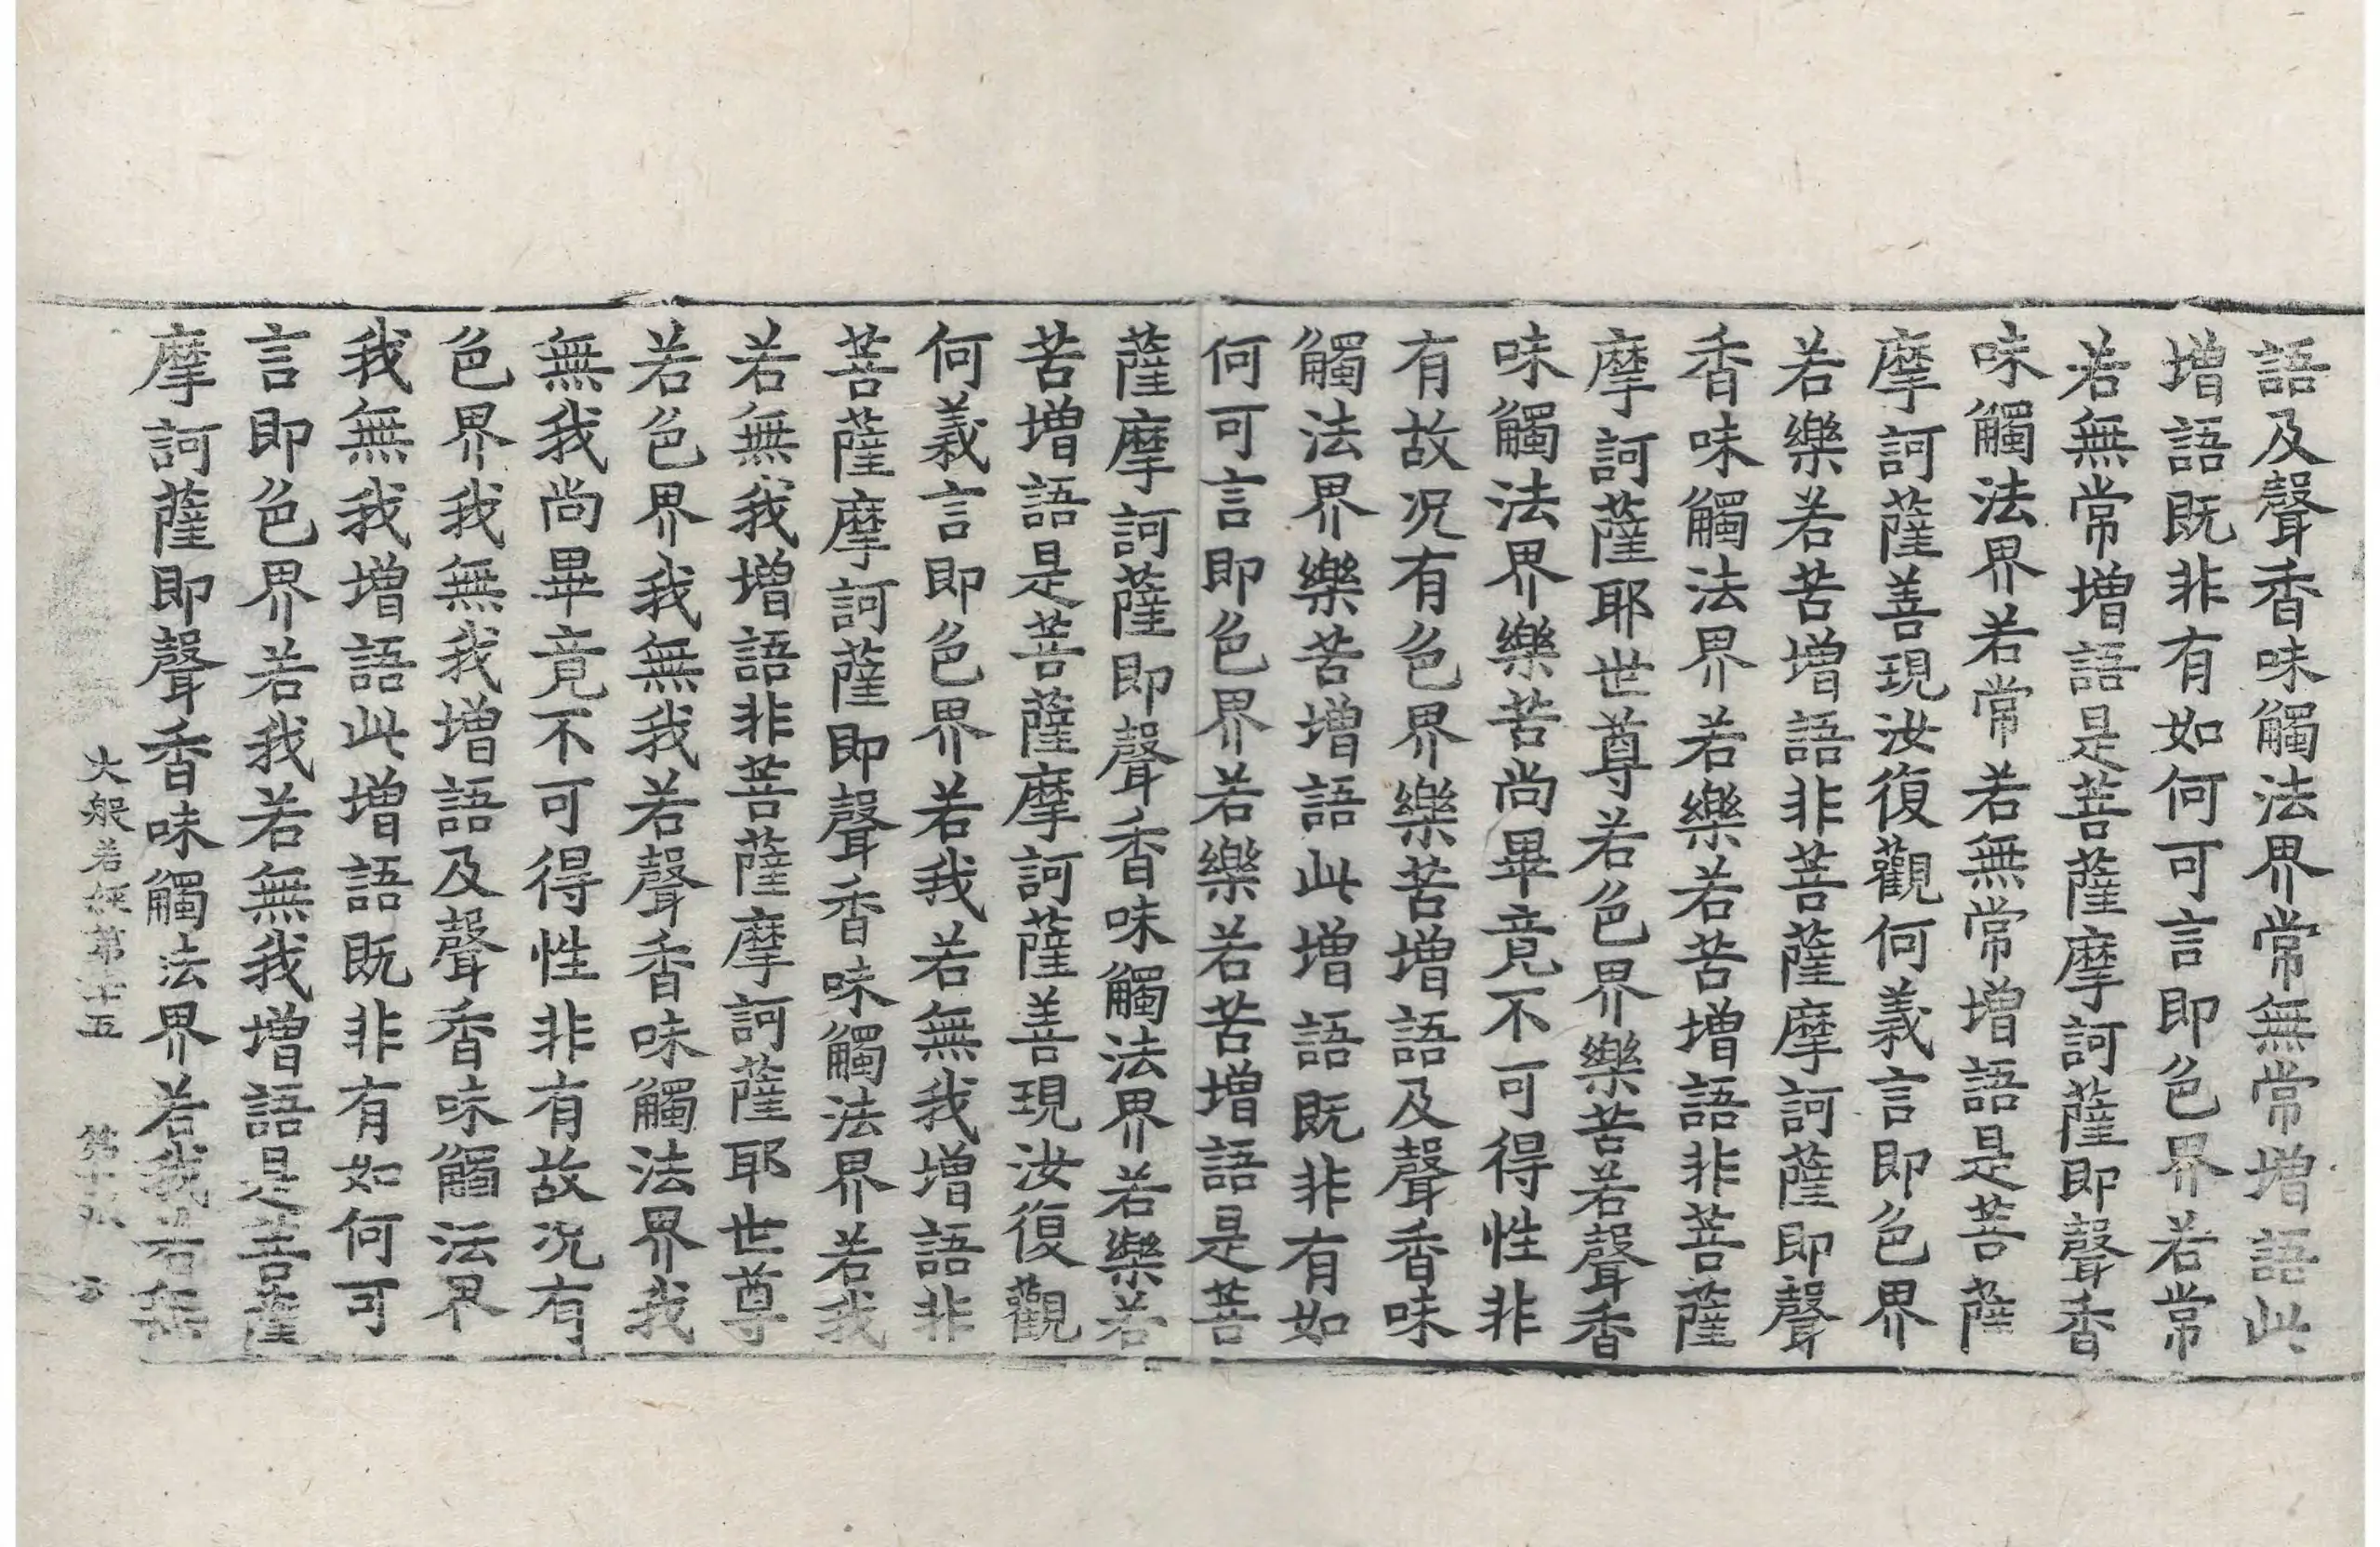 語及聲香味觸法界常無常增語此
增語既非有如何可言即色界若常
若無常增語是菩薩摩訶薩即聲香
味觸法界若常若無常增語是菩薩
摩訶薩善現汝復觀何義言即色界
若樂若苦增語非菩薩摩訶薩即聲
香味觸法界若樂若苦增語非菩薩
摩訶薩耶世尊若色界樂苦若聲香
味觸法界樂苦尚畢竟不可得性非
有故況有色界樂苦增語及聲香味
觸法界樂苦增語此增語既非有如
何可言即色界若樂若苦增語是菩
薩摩訶薩即聲香味觸法界若樂若
苦增語是菩薩摩訶薩善現汝復觀
何義言即色界若我若無我增語非
菩薩摩訶薩即聲香味觸法界若我
若無我增語非菩薩摩訶薩耶世尊
若色界我無我若聲香味觸法界我
無我尚畢竟不可得性非有故況有
色界我無我增語及聲香味觸法界
我無我增語此增語既非有如何可
言即色界若我若無我增語是菩薩
摩訶薩即聲香味觸法界若我若無
大般若經第十五 第十張